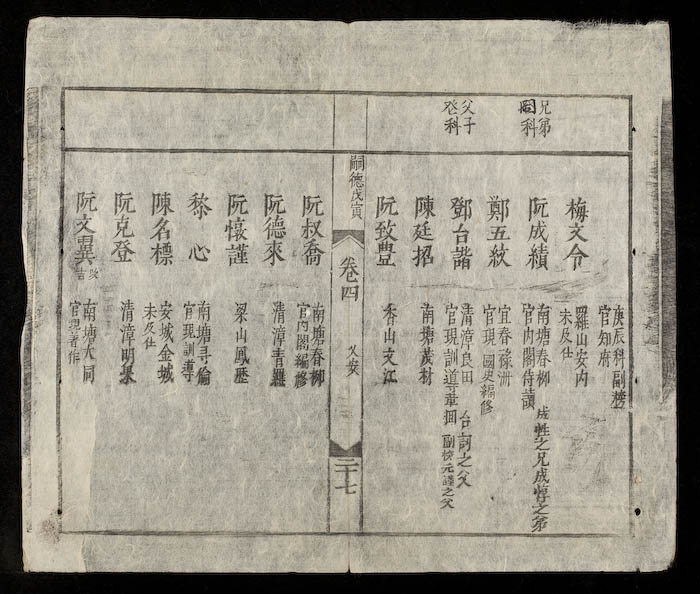 庚辰科副榜
官知府
梅文令
羅山安内
未及仕
兄弟
同科
阮成績
南塘春柳
官内閣侍讀
成甡之兄成惇之弟
鄭五紋
宜春祿洲
官現國史編修
父子
登科
鄧台諧
清漳良田
台訶之父
官現訓導
副榜元謹之父
陳廷招
南塘茂材
阮致豊
香山文江
嗣德戊寅
卷四
乂安
二十七
阮叔喬
南塘春柳
官内閣編修
阮德來
清漳青羅
阮懷謹
梁山鳳歷
黎心
南塘尋倫
官現訓導
陳名標
安城金城
未及仕
阮克登
清漳明集
阮文異
改吉
南塘大同
官現著作